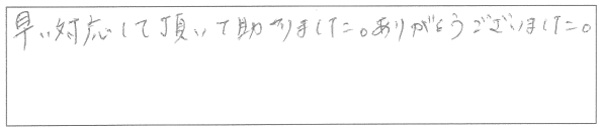 早い対応して頂いて助かりました。ありがとうございました。